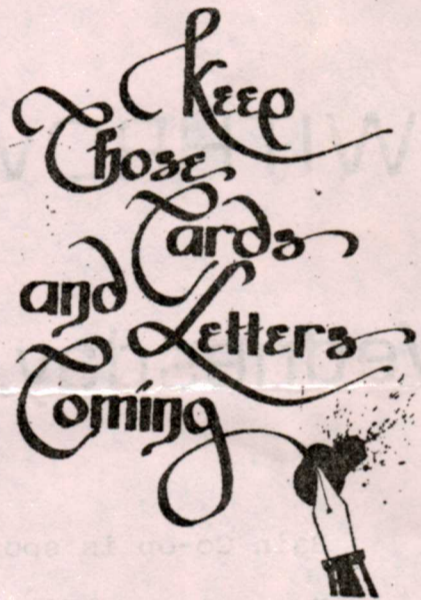 Keep
Those
Cards
and Letters
Coming